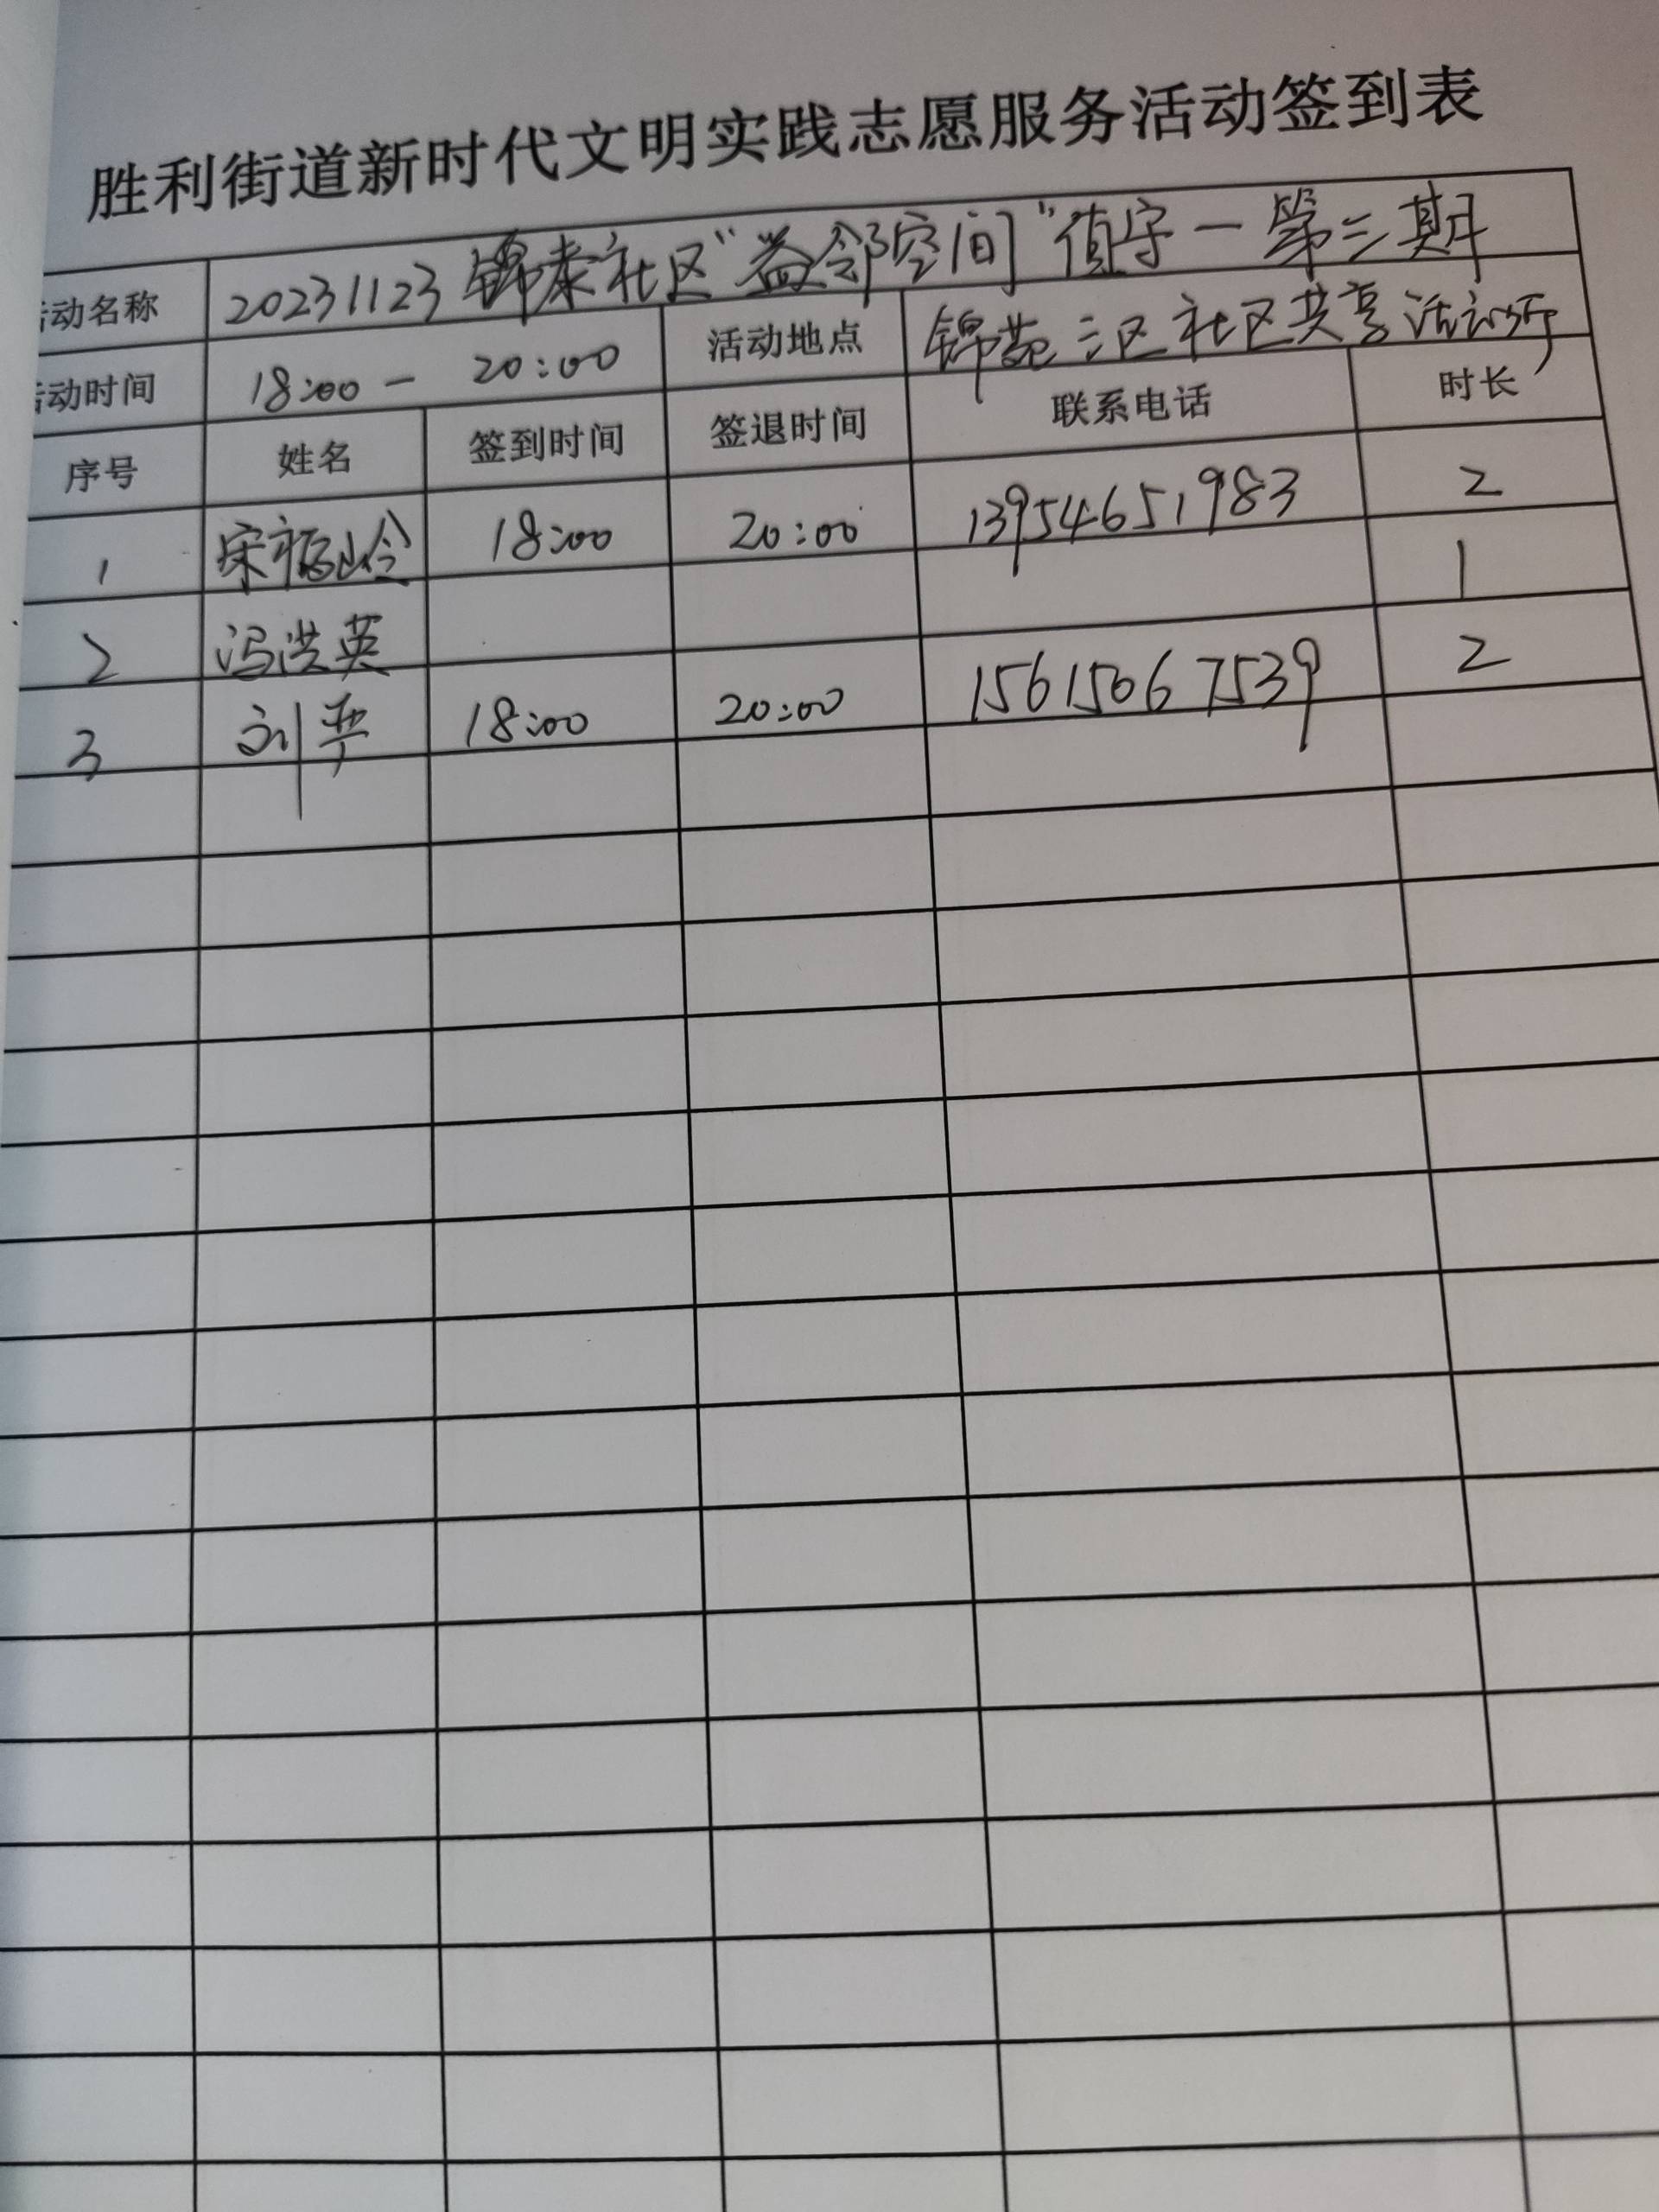 胜利街道新时代文明实践志愿服务活动签到表
动名称 20231123 锦泰社区“益邻空间”值守一第三期
动时间 18:00 - 20:00 活动地点 锦苑三区社区共享活动所
序号 姓名 签到时间 签退时间 联系电话 时长
1 宋福岭 18:00 20:00 13954651983 2
2 冯洪英 1
3 刘 18:00 20:00 15615067539 2